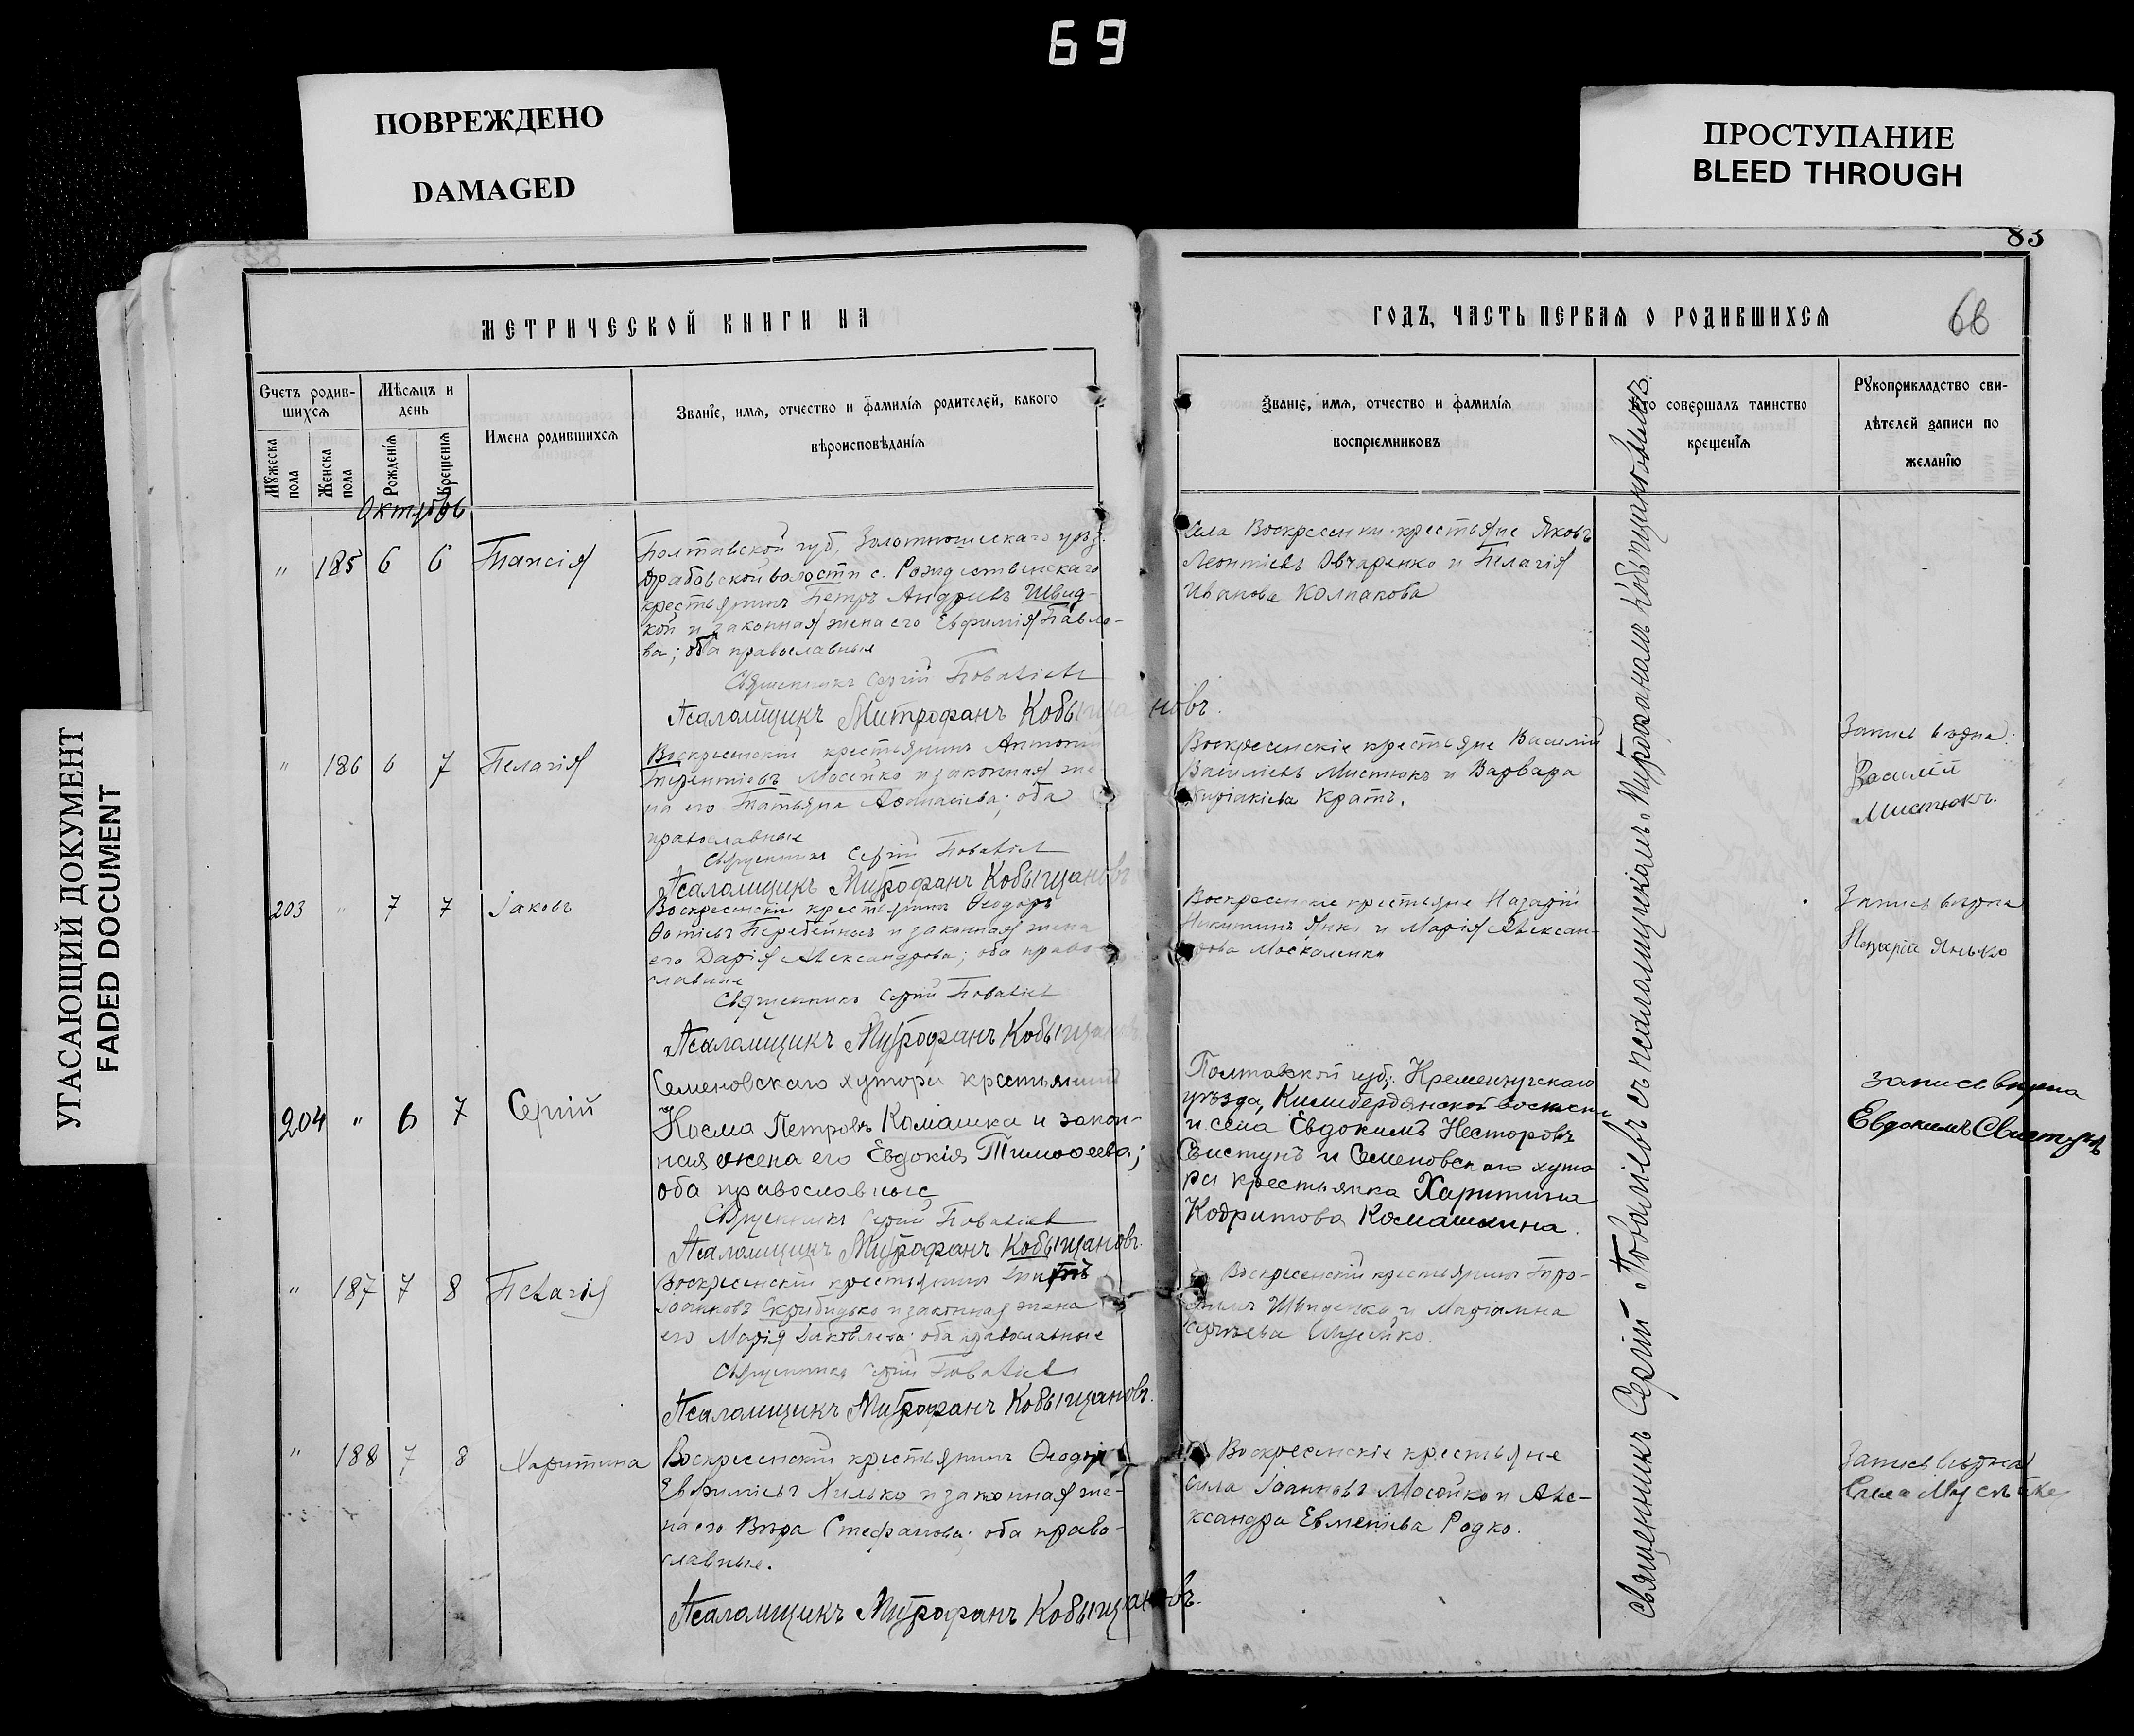 69
ПОВРЕЖДЕНО
DAMAGED
ПРОСТУПАНИЕ
BLEED THROUGH
УГАСАЮЩИЙ ДОКУМЕНТ
FADED DOCUMENT
83
68
МЕТРИЧЕСКОЙ КНИГИ НА
ГОДЪ, ЧАСТЬ ПЕРВАЯ О РОДИВШИХСЯ
Счетъ родив-
шихся
Мужеска
пола
Женска
пола
Мѣсяцъ и
день
Рожденія
Крещенія
Имена родившихся
Званіе, имя, отчество и фамилія родителей, какого
вѣроисповѣданія
Званіе, имя, отчество и фамилія
воспріемниковъ
Кто совершалъ таинство
крещенія
Рукоприкладство сви-
дѣтелей записи по
желанію
Октябрь
" 185 6 6 Таисія
Полтавской губ, Золотоношскаго уѣз.
Драбовской волости с. Рождественскаго
крестьянинъ Петръ Андреевъ Швид-
кой и законная жена его Евфимія Павло-
ва; оба православные
Священникъ Сергій
Псаломщикъ Митрофанъ Кобыщановъ.
Села Воскресенки крестьяне Яковъ
Леонтіевъ Овчаренко и Пелагія
Иванова Колпакова
" 186 6 7 Пелагія
Воскресенскій крестьянинъ Антоній
Терентіевъ Мосейко и законная же-
на его Татьяна Аѳанасіева; оба
православные
Священникъ Сергій
Псаломщикъ Митрофанъ Кобыщановъ
Воскресенскіе крестьяне Василій
Василіевъ Мистюкъ и Варвара
Киріакіева Кратъ.
Запись вѣрна:
Василій
Мистюкъ.
203 " 7 7 Іаковъ
Воскресенскій крестьянинъ Ѳеодоръ
Фотіевъ Перебейносъ и законная жена
его Дарія Александрова; оба право-
славные
Священникъ Сергій
Псаломщикъ Митрофанъ Кобыщановъ
Воскресенскіе крестьяне Назарій
Никитинъ Янко и Марія Алексан-
дрова Москаленко
Запись вѣрна
Назарій Янько
204 " 6 7 Сергій
Семеновскаго хутора крестьянинъ
Косма Петровъ Комашка и закон-
ная жена его Евдокія Тимоѳеева;
оба православные
Священникъ Сергій
Псаломщикъ Митрофанъ Кобыщановъ.
Полтавской губ; Кременчугскаго
уѣзда, Келибердянской волости
и села Евдокимъ Несторовъ
Свистунъ и Семеновскаго хуто
ра крестьянка Харитина
Кодратова Комашкина.
Запись вѣрна
Евдокимъ Свистунъ
" 187 7 8 Пелагія
Воскресенскій крестьянинъ
Іоанновъ Скрибицько и законная жена
его Марія Іаковлева; оба православные
Священникъ Сергій
Псаломщикъ Митрофанъ Кобыщановъ.
Воскресенскій крестьянинъ Тро-
и Маріамна
" 188 7 8 Харитина
Воскресенскій крестьянинъ Ѳеодоръ
Евфиміевъ Хилько и законная же-
на его Вѣра Стефанова; оба право-
славные.
Псаломщикъ Митрофанъ Кобыщановъ.
Воскресенскіе крестьяне
Сила Іоанновъ Мосейко и Але-
ксандра Евменіева Родко.
Запись вѣрна
Сила
Священникъ Сергій Поваліевъ съ псаломщикомъ Митрофаномъ Кобыщановымъ.